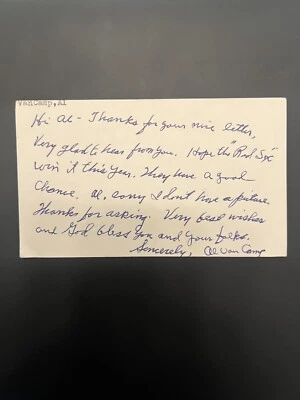 VanCamp,Al
Hi Al - Thanks for your nice letter,
Very glad to hear from you. Hope the "Red Sox"
win it this year. They have a good
chance. Al, sorry I don't have a picture.
Thanks for asking. Very best wishes
and God bless You and Your folks.
Sincerely, Al Van Camp